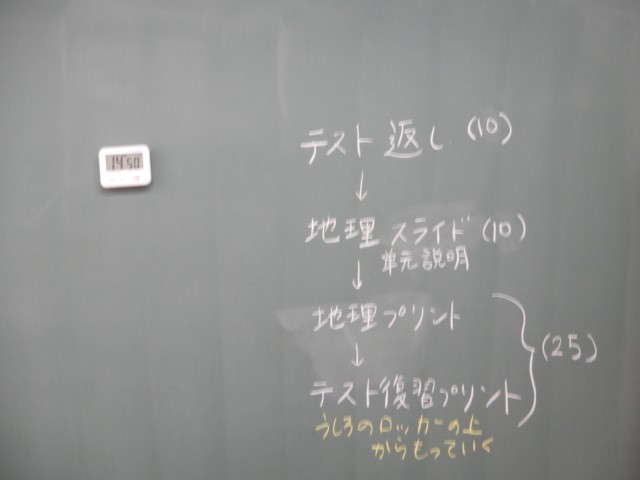 14:50
テスト返し (10)
↓
地理スライド (10)
単元説明
↓
地理プリント
↓
(25)
テスト復習プリント
うしろのロッカーの上
からもっていく